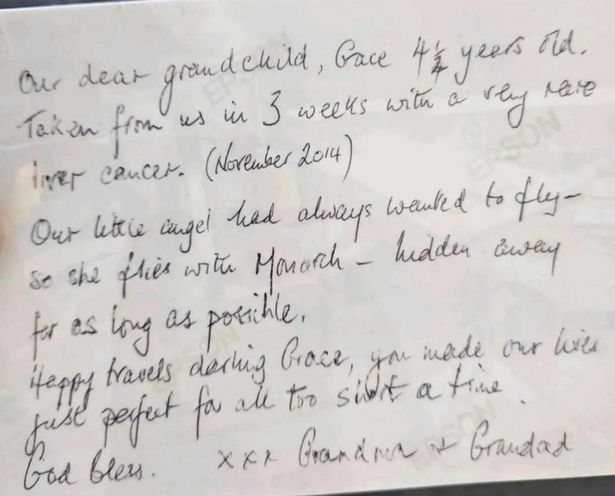 Our dear grandchild, Grace 4¼ years old.
Taken from us in 3 weeks with a very rare
liver cancer. (November 2014)
Our little angel had always wanted to fly—
so she flies with Monarch — hidden away
for as long as possible.
Happy travels darling Grace, you made our lives
just perfect for all too short a time.
God Bless. xxx Grandma & Grandad
EPSON
EPSON